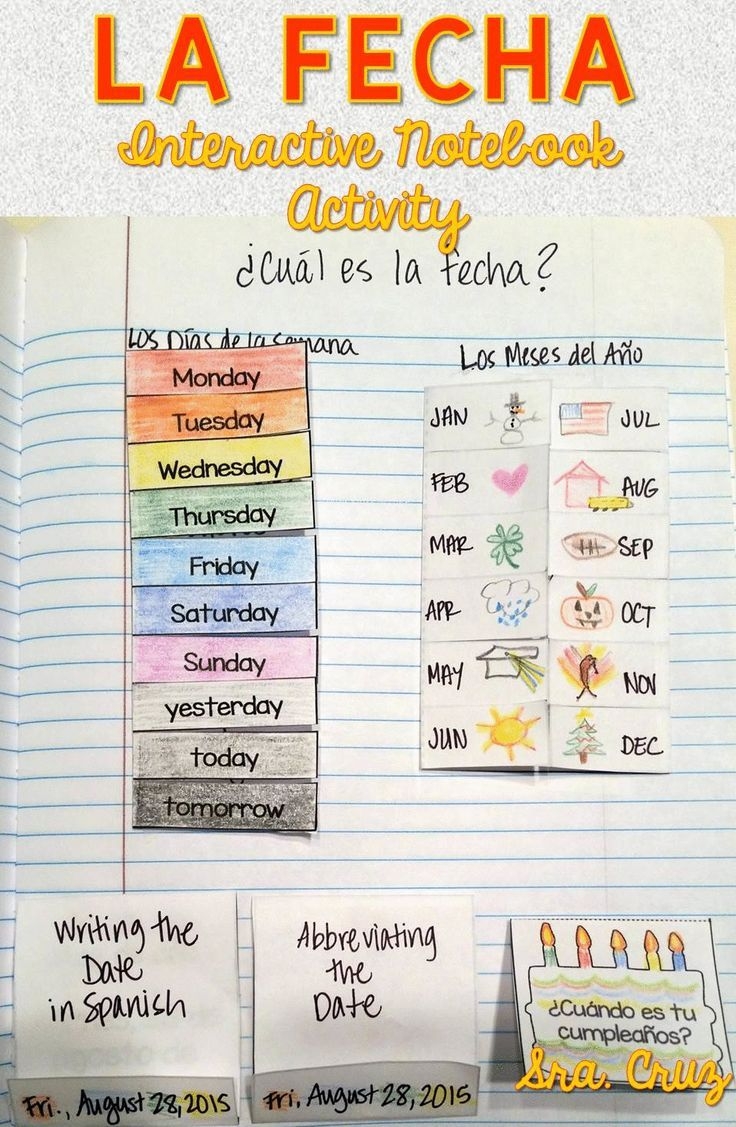 LA FECHA
Interactive Notebook
Activity
¿Cuál es la fecha?
Los Días de la Semana
Monday
Tuesday
Wednesday
Thursday
Friday
Saturday
Sunday
yesterday
today
tomorrow
Los Meses del Año
JAN
JUL
FEB
AUG
MAR
SEP
APR
OCT
MAY
NOV
JUN
DEC
Writing the
Date
in Spanish
Fri., August 28, 2015
Abbreviating
the
Date
Fri, August 28, 2015
¿Cuándo es tu
cumpleaños?
Sra. Cruz